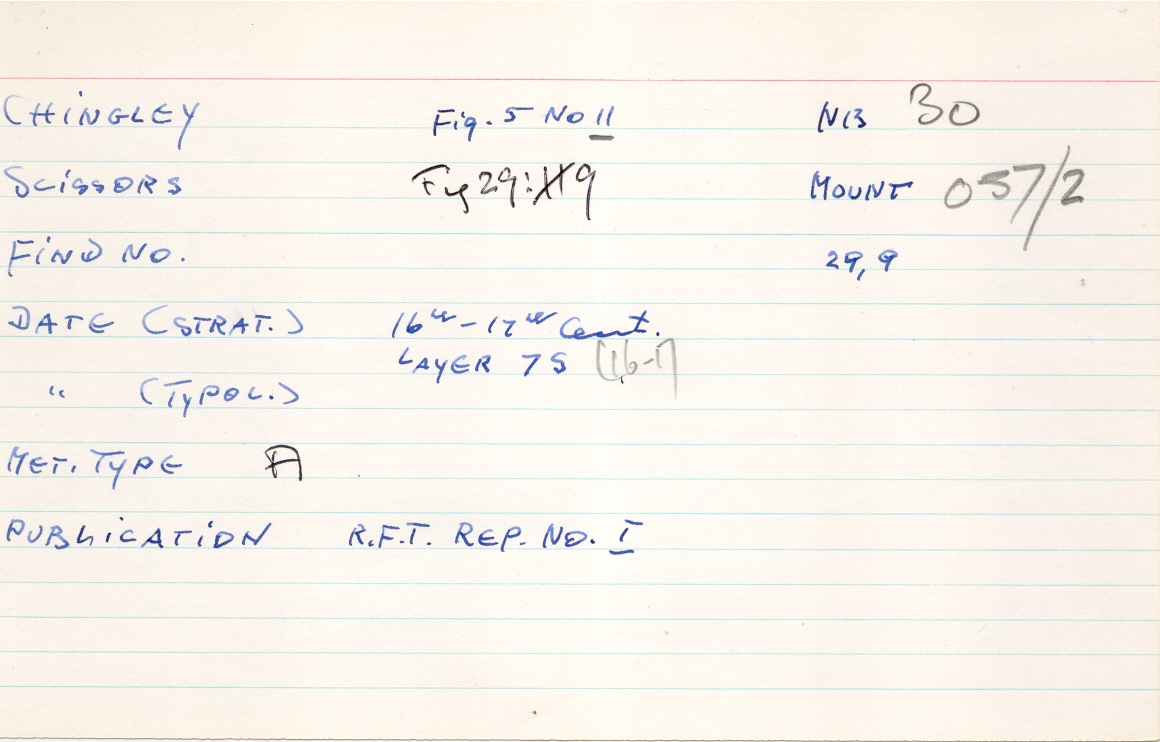 CHINGLEY Fig. 5 No 11 NB 30
SCISSORS Fig 29: 9 MOUNT 057/2
FIND NO. 29, 9
DATE (STRAT.) 16th - 17th Cent.
LAYER 7S (16-1)
" (TYPOL.)
MET. TYPE A
PUBLICATION R.F.T. REP. NO. I